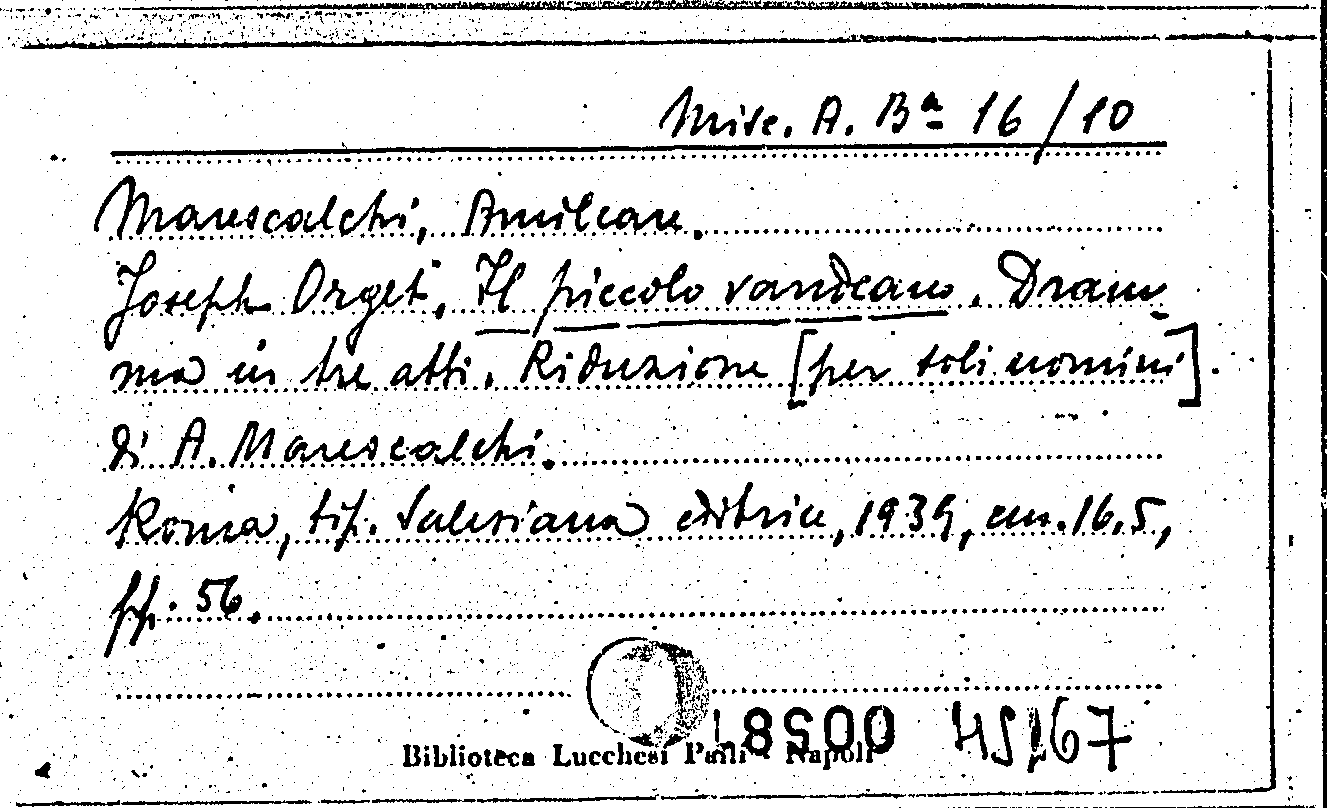 Misc. A. Bª 16/10
Marescalchi, Amilcare.
Joseph Orget. Il piccolo vandeano. Dram-
ma in tre atti. Riduzione [per soli uomini].
di A. Marescalchi.
Roma, tip. Salesiana editrice, 1939, cm. 16.5,
pp. 56.
Biblioteca Lucchesi Palli - Napoli
45167